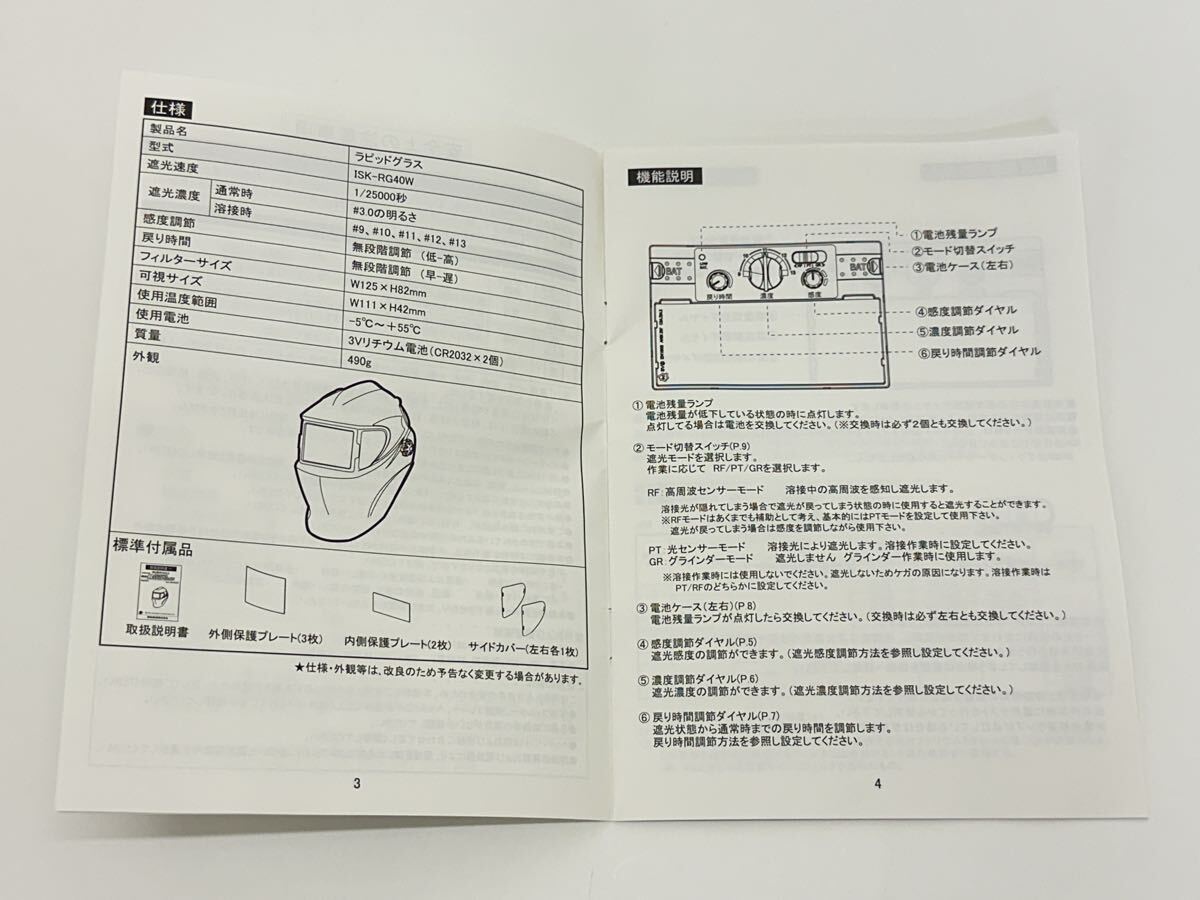 仕様
製品名 ラピッドグラス
型式 ISK-RG40W
遮光速度 1/25000秒
遮光濃度 通常時 #3.0の明るさ
溶接時 #9、#10、#11、#12、#13
感度調節 無段階調節 (低-高)
戻り時間 無段階調節 (早-遅)
フィルターサイズ W125×H82mm
可視サイズ W111×H42mm
使用温度範囲 -5℃～+55℃
使用電池 3Vリチウム電池(CR2032×2個)
質量 490g
外観
標準付属品
取扱説明書
外側保護プレート(3枚)
内側保護プレート(2枚)
サイドカバー(左右各1枚)
★仕様・外観等は、改良のため予告なく変更する場合があります。
3
機能説明
①電池残量ランプ
②モード切替スイッチ
③電池ケース(左右)
④感度調節ダイヤル
⑤濃度調節ダイヤル
⑥戻り時間調節ダイヤル
BAT
BAT
戻り時間
濃度
感度
① 電池残量ランプ
電池残量が低下している状態の時に点灯します。
点灯してる場合は電池を交換してください。(※交換時は必ず2個とも交換してください。)
② モード切替スイッチ(P.9)
遮光モードを選択します。
作業に応じて RF/PT/GRを選択します。
RF:高周波センサーモード 溶接中の高周波を感知し遮光します。
溶接光が隠れてしまう場合で遮光が戻ってしまう状態の時に使用すると遮光することができます。
※RFモードはあくまでも補助として考え、基本的にはPTモードを設定して使用下さい。
遮光が戻ってしまう場合は感度を調節しながら使用下さい。
PT:光センサーモード 溶接光により遮光します。溶接作業時に設定してください。
GR:グラインダーモード 遮光しません グラインダー作業時に使用します。
※溶接作業時には使用しないでください。遮光しないためケガの原因になります。溶接作業時は
PT/RFのどちらかに設定してください。
③ 電池ケース(左右)(P8)
電池残量ランプが点灯したら交換してください。(交換時は必ず左右とも交換してください。)
④ 感度調節ダイヤル(P.5)
遮光感度の調節ができます。(遮光感度調節方法を参照し設定してください。)
⑤ 濃度調節ダイヤル(P.6)
遮光濃度の調節ができます。(遮光濃度調節方法を参照し設定してください。)
⑥ 戻り時間調節ダイヤル(P.7)
遮光状態から通常時までの戻り時間を調節します。
戻り時間調節方法を参照し設定してください。
4